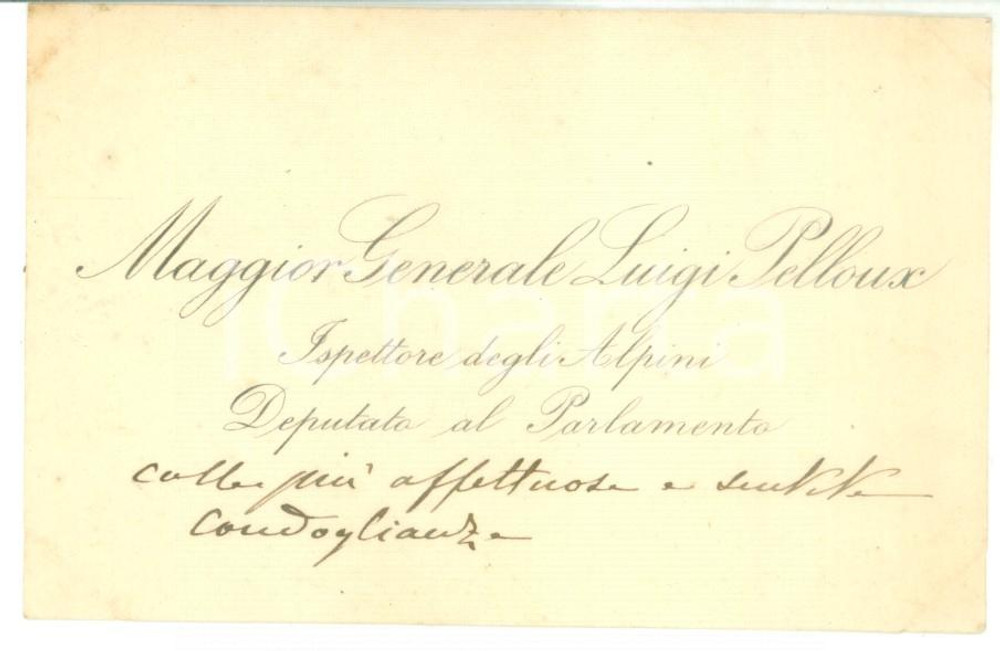 Maggior Generale Luigi Pelloux
Ispettore degli Alpini
Deputato al Parlamento
colle più affettuose e sentite
condoglianze